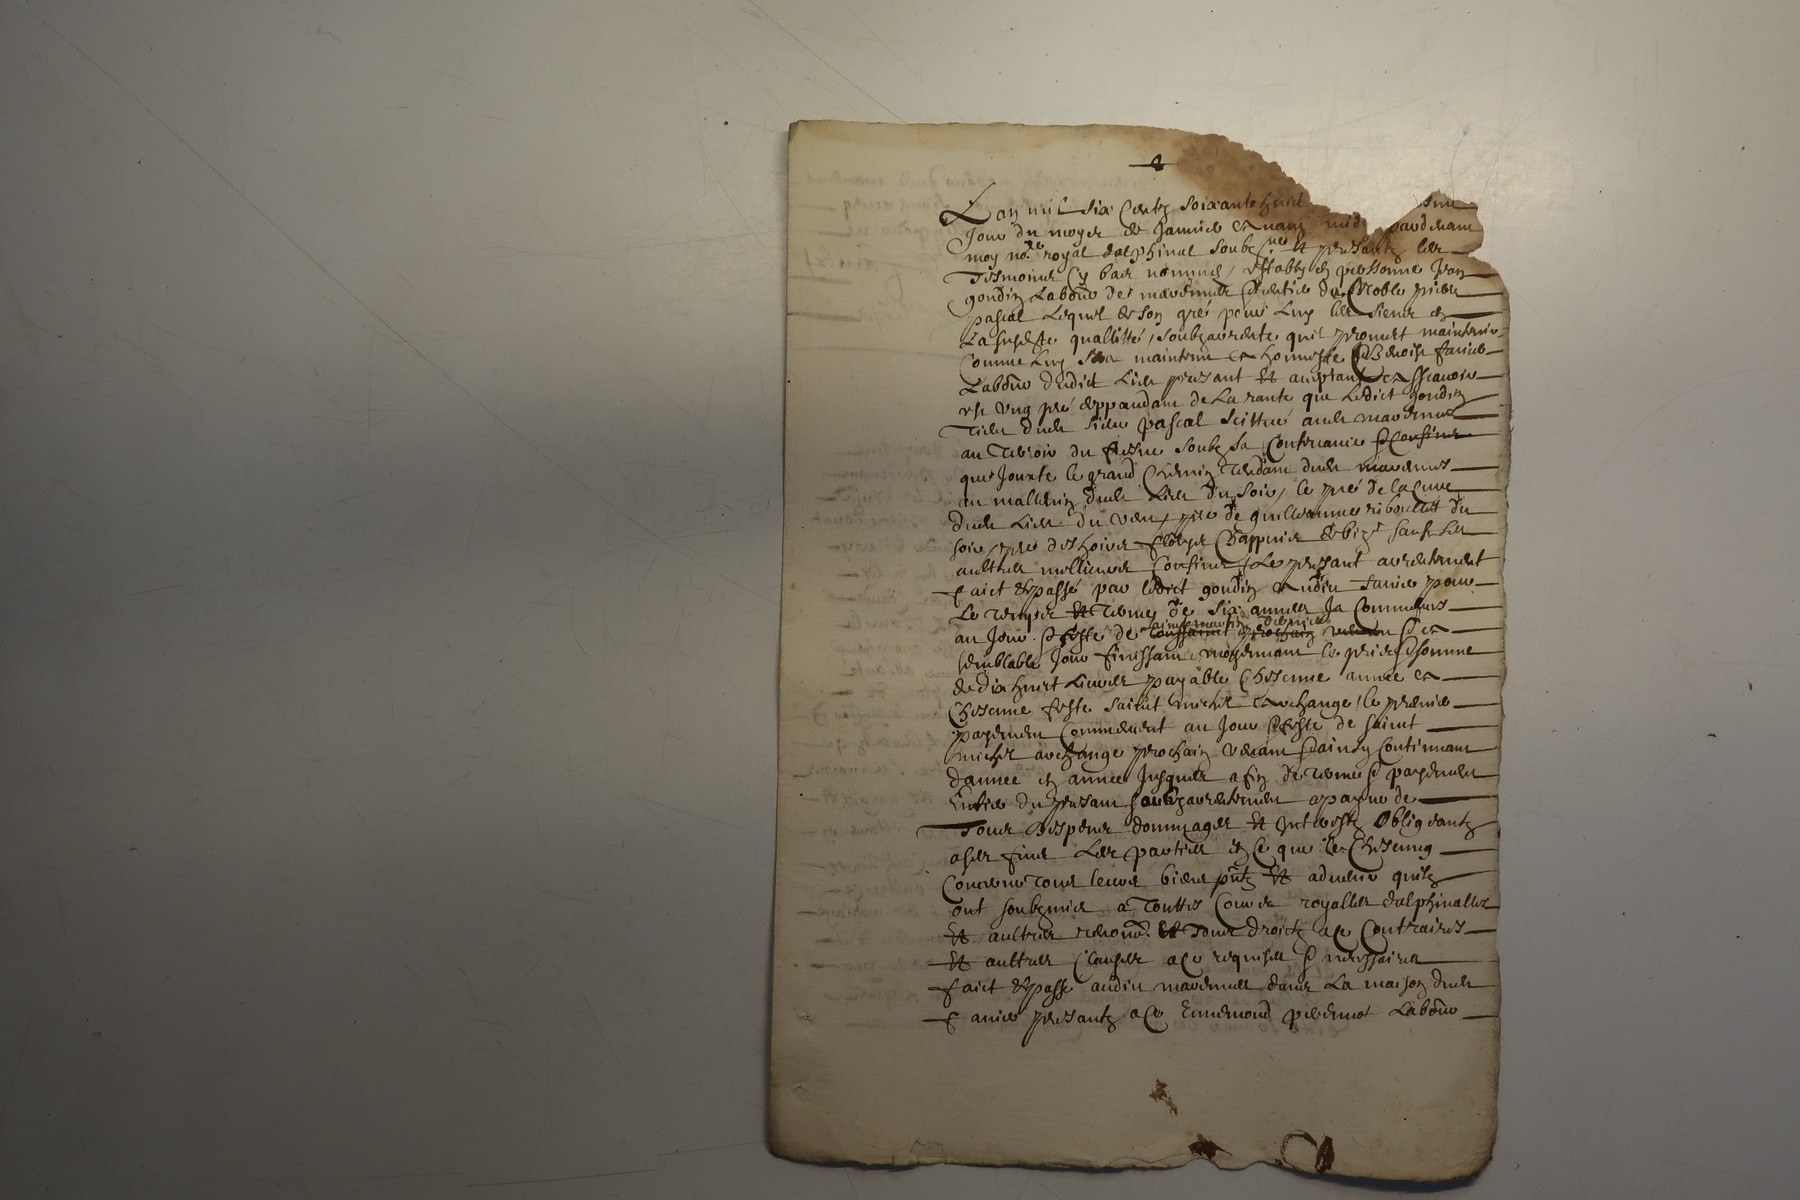 Lan mil six Centz soixante huict
Jour du moys de Janvier avant midy pardevant
moy nore royal dalphinal soubzne et presantz les
Tesmoins Cy bas nommes, estably en personne Jean
gondin Labour de marennes Rentier de Noble pierre
pascal Lequel de son gré pour Luy les siens en
La susdte quallitté, soubzarente quil promect maintenir
Comme Luy sera maintenu a honneste Benoist Janier
Labour dudict Lieu presant et aceptant Assavoir
est Ung pré deppandant de La rante que Ledict gondin
Tient dudt sieur pascal scittué audt marennes
au Terroir du fresne soubz sa Contenance & Confins
que Jouxte le grand Chemin Tendant dudt marennes
au mollin dudt Lieu du soir, le pré de la Cure
dudt Lieu du vent, pré de guilleaume riboullet du
soir, pré des hoirs Claude Chappuis de bize sauf ses
aultres meilleurs Confins, Le presant arrentement
faict & passé par ledict gondin audit Janier pour
Le temps et terme de six annees Ja Commencés
au Jour & feste de toussainct saint martin dernier & a
semblable Jour finissant, moyennant le prix & somme
de dix huict Livres payable Chescune année a
Chescune feste sainct michel archange, le premier
payement Commencent au Jour & feste de sainct
michel archange prochain venant & ainsy Continuant
dannee en annee Jusques a fin de terme & payement
Entier du presant soubzarrentement a payne de
Tous Despens dommages et Interestz Obligeantz
a ses fins Les parties en Ce que les Chescung
Concerne tous leurs biens pntz et advenir quilz
ont soubzmis a Touttes Cours royalles dalphinalles
et aultres renonce et Tous droictz a Ce Contraires
et aultres Clauses a Ce requises & necessaires
faict & passé audit marennes dans La maison dudt
Janier presantz a Ce Ennemond pivernot Labour